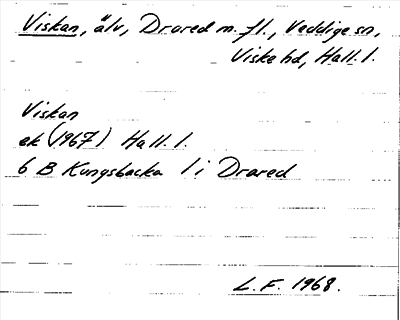 Viskan, älv, Drared m. fl., Veddige sn,
Viske hd, Hall. l.
Viskan
ek (1967) Hall. l.
6 B Kungsbacka 1 i Drared
L. F. 1968.